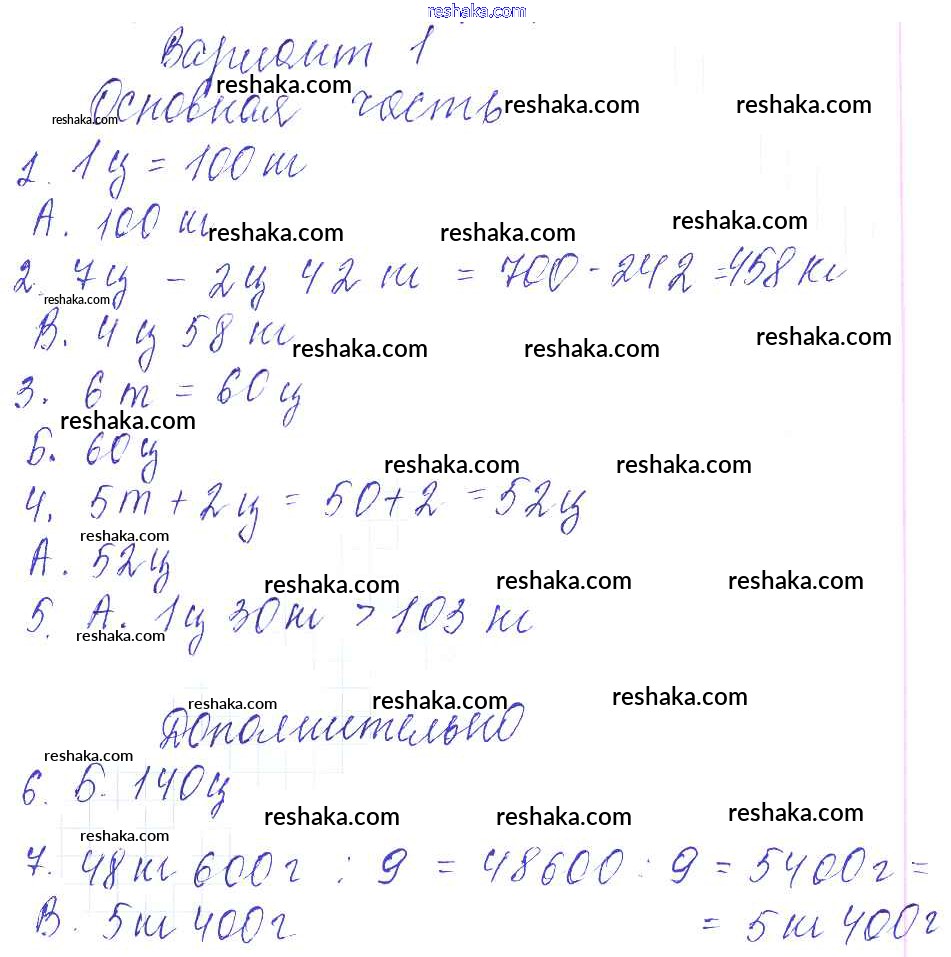 reshaka.com
Вариант 1
reshaka.com
Основная часть
reshaka.com reshaka.com reshaka.com
1. 1 ц = 100 кг
А. 100 кг
reshaka.com reshaka.com reshaka.com
2. 7ц - 2ц 42 кг = 700 - 242 = 458 кг
reshaka.com
В. 4 ц 58 кг
reshaka.com reshaka.com reshaka.com
3. 6 т = 60 ц
reshaka.com
Б. 60 ц
reshaka.com reshaka.com
4. 5т + 2 ц = 50 + 2 = 52 ц
reshaka.com
А. 52ц
reshaka.com reshaka.com reshaka.com
5. А. 1ц 30 кг > 103 кг
reshaka.com
reshaka.com reshaka.com reshaka.com
Дополнительно
reshaka.com
6. Б. 140ц
reshaka.com reshaka.com reshaka.com
reshaka.com
7. 48 кг 600 г : 9 = 48600 : 9 = 5400 г =
В. 5 кг 400 г = 5 кг 400 г